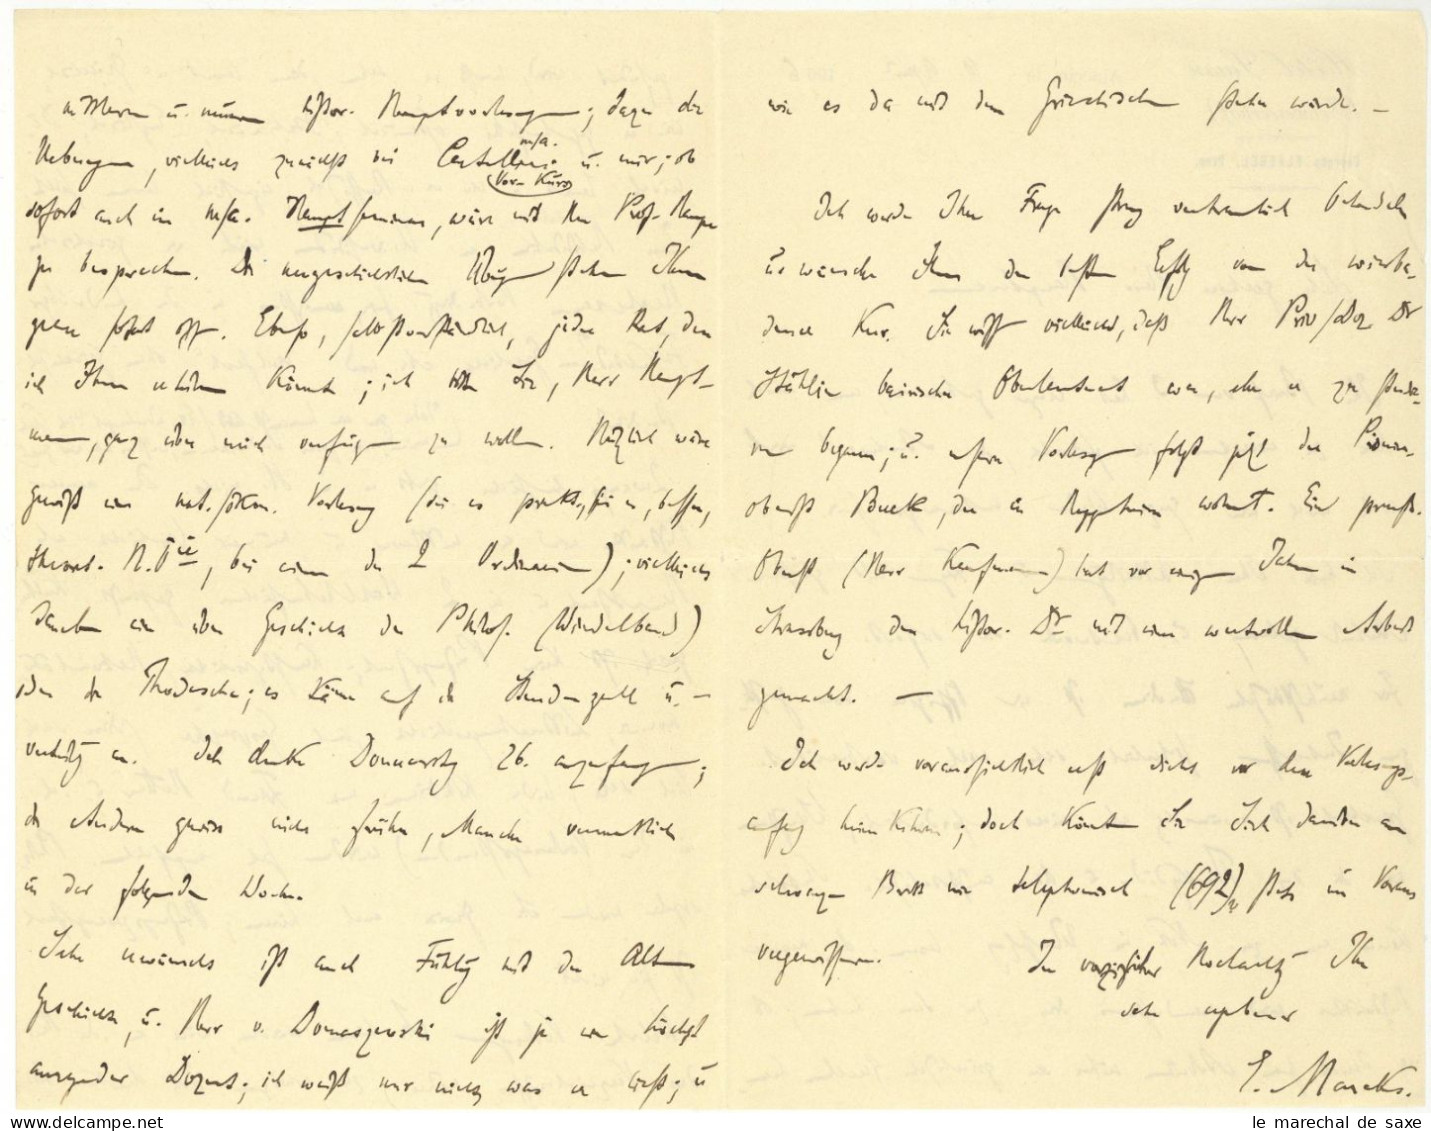 u. meiner histor. Hauptvorlesungen; dazu die
Uebungen, vielleicht zunächst bei Cartellieri u. mir; ob
m/a.
Vor-Kurs
sofort auch im m/a. Hauptseminar, wäre mit Herrn Prof. Hampe
zu besprechen. Die neugeschichtlichen Übungen stehen Ihnen
gern sofort off. Ebenso, selbstverständlich, jeder Rat, den
ich Ihnen erteilen könnte; ich bitte Sie, Herr Haupt-
mann, ganz über mich verfügen zu wollen. Nützlich wäre
gewiß eine nat.-ökon. Vorlesung (sei es prakt., sei es, besser,
theoret. N.Oie, bei einem der 2 Ordinarien); vielleicht
daneben eine über Geschichte der Philos. (Windelband)
oder die Thodesche; es käme auf die Stundenzahl u. –
verteilg an. Ich denke Donnerstg 26. anzufangen;
die Anderen gewiss nicht früher, Manche vermutlich
in der folgenden Woche.
Sehr erwünscht ist auch Fühlg mit der Alten
Geschichte, u. Herr v. Domaszewski ist ja ein höchst
anregender Dozent; ich weiß nur nicht was er liest; u
wie es da mit dem Griechischen stehen würde. –
Ich werde Ihre Frage streng vertraulich behandeln
u. wünsche Ihnen den besten Erfolg von der Wiesba-
dener Kur. Sie wissen vielleicht, daß Herr Priv/Doz Dr
Stählin bairischer Oberleutnant war, ehe er zu studie-
ren begann; u. unsern Vorlesgn folgt jetzt der Pionier-
oberst Buck, der in Heppenheim wohnt. Ein preuß.
Oberst (Herr Kaufmann) hat vor einigen Jahren in
Strassburg den histor. Dr mit einer wertvollen Arbeit
gemacht. –
Ich werde voraussichtlich erst dicht vor dem Vorlesgs-
anfang heimkehren; doch könnten Sie Sich darüber an
schwarzen Brett wie telephonisch (692), stets im Voraus
vergewissern.
In vorzüglicher Hochachtg Ihr
sehr ergebener
E. Marcks.
le marechal de saxe